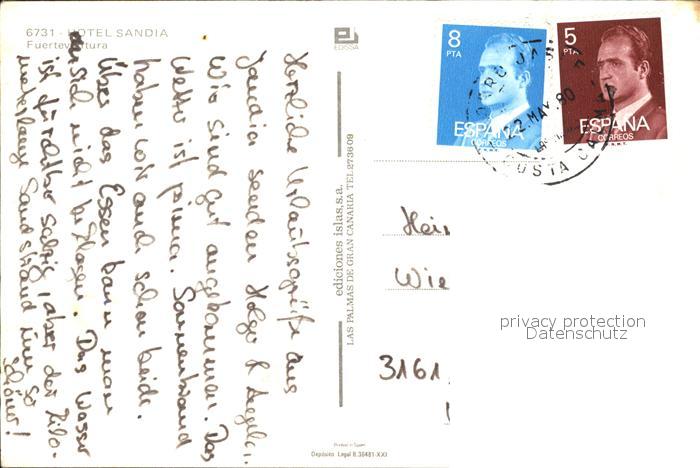 6731 - HOTEL SANDIA
Fuerteventura
EDISSA
Herzliche Urlaubsgrüße aus
Jandia senden Holger &
Wir sind gut angekommen. Das
Wetter ist prima. Sonnenbrand
haben wir auch schon beide.
Über das Essen kann man
sich nicht beklagen. Das Wasser
ist furchtbar salzig, aber der kilo-
meterlange Sandstrand um so
schöner!
ediciones islas, s.a.
LAS PALMAS DE GRAN CANARIA TEL. 273609
Printed in Spain
Depósito Legal B. 38481-XXI
8
PTA
ESPAÑA
CORREOS
F.N.M.T.
5
PTA
ESPAÑA
CORREOS
F.N.M.T.
2 MAY. 80
Wie
3161
privacy protection
Datenschutz